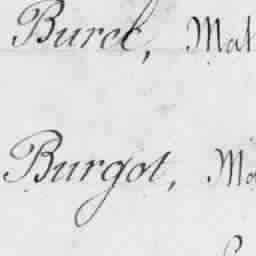 Burel, Mat
Burgot, Ma